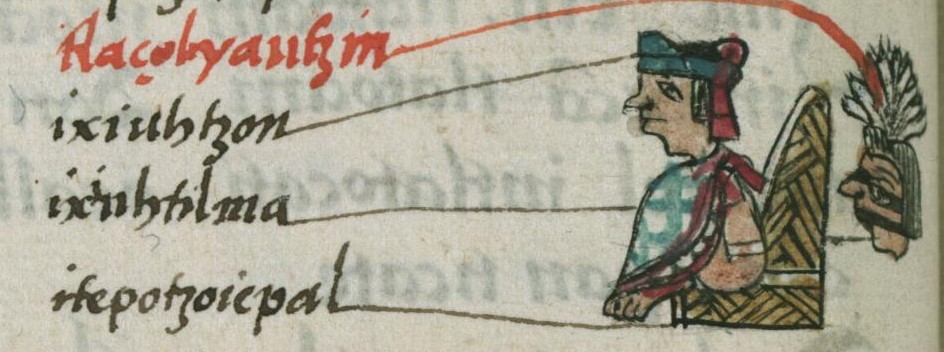 tlaçolyautzin
ixiuhtzon
ixiuhtilma
itepotzoicpal